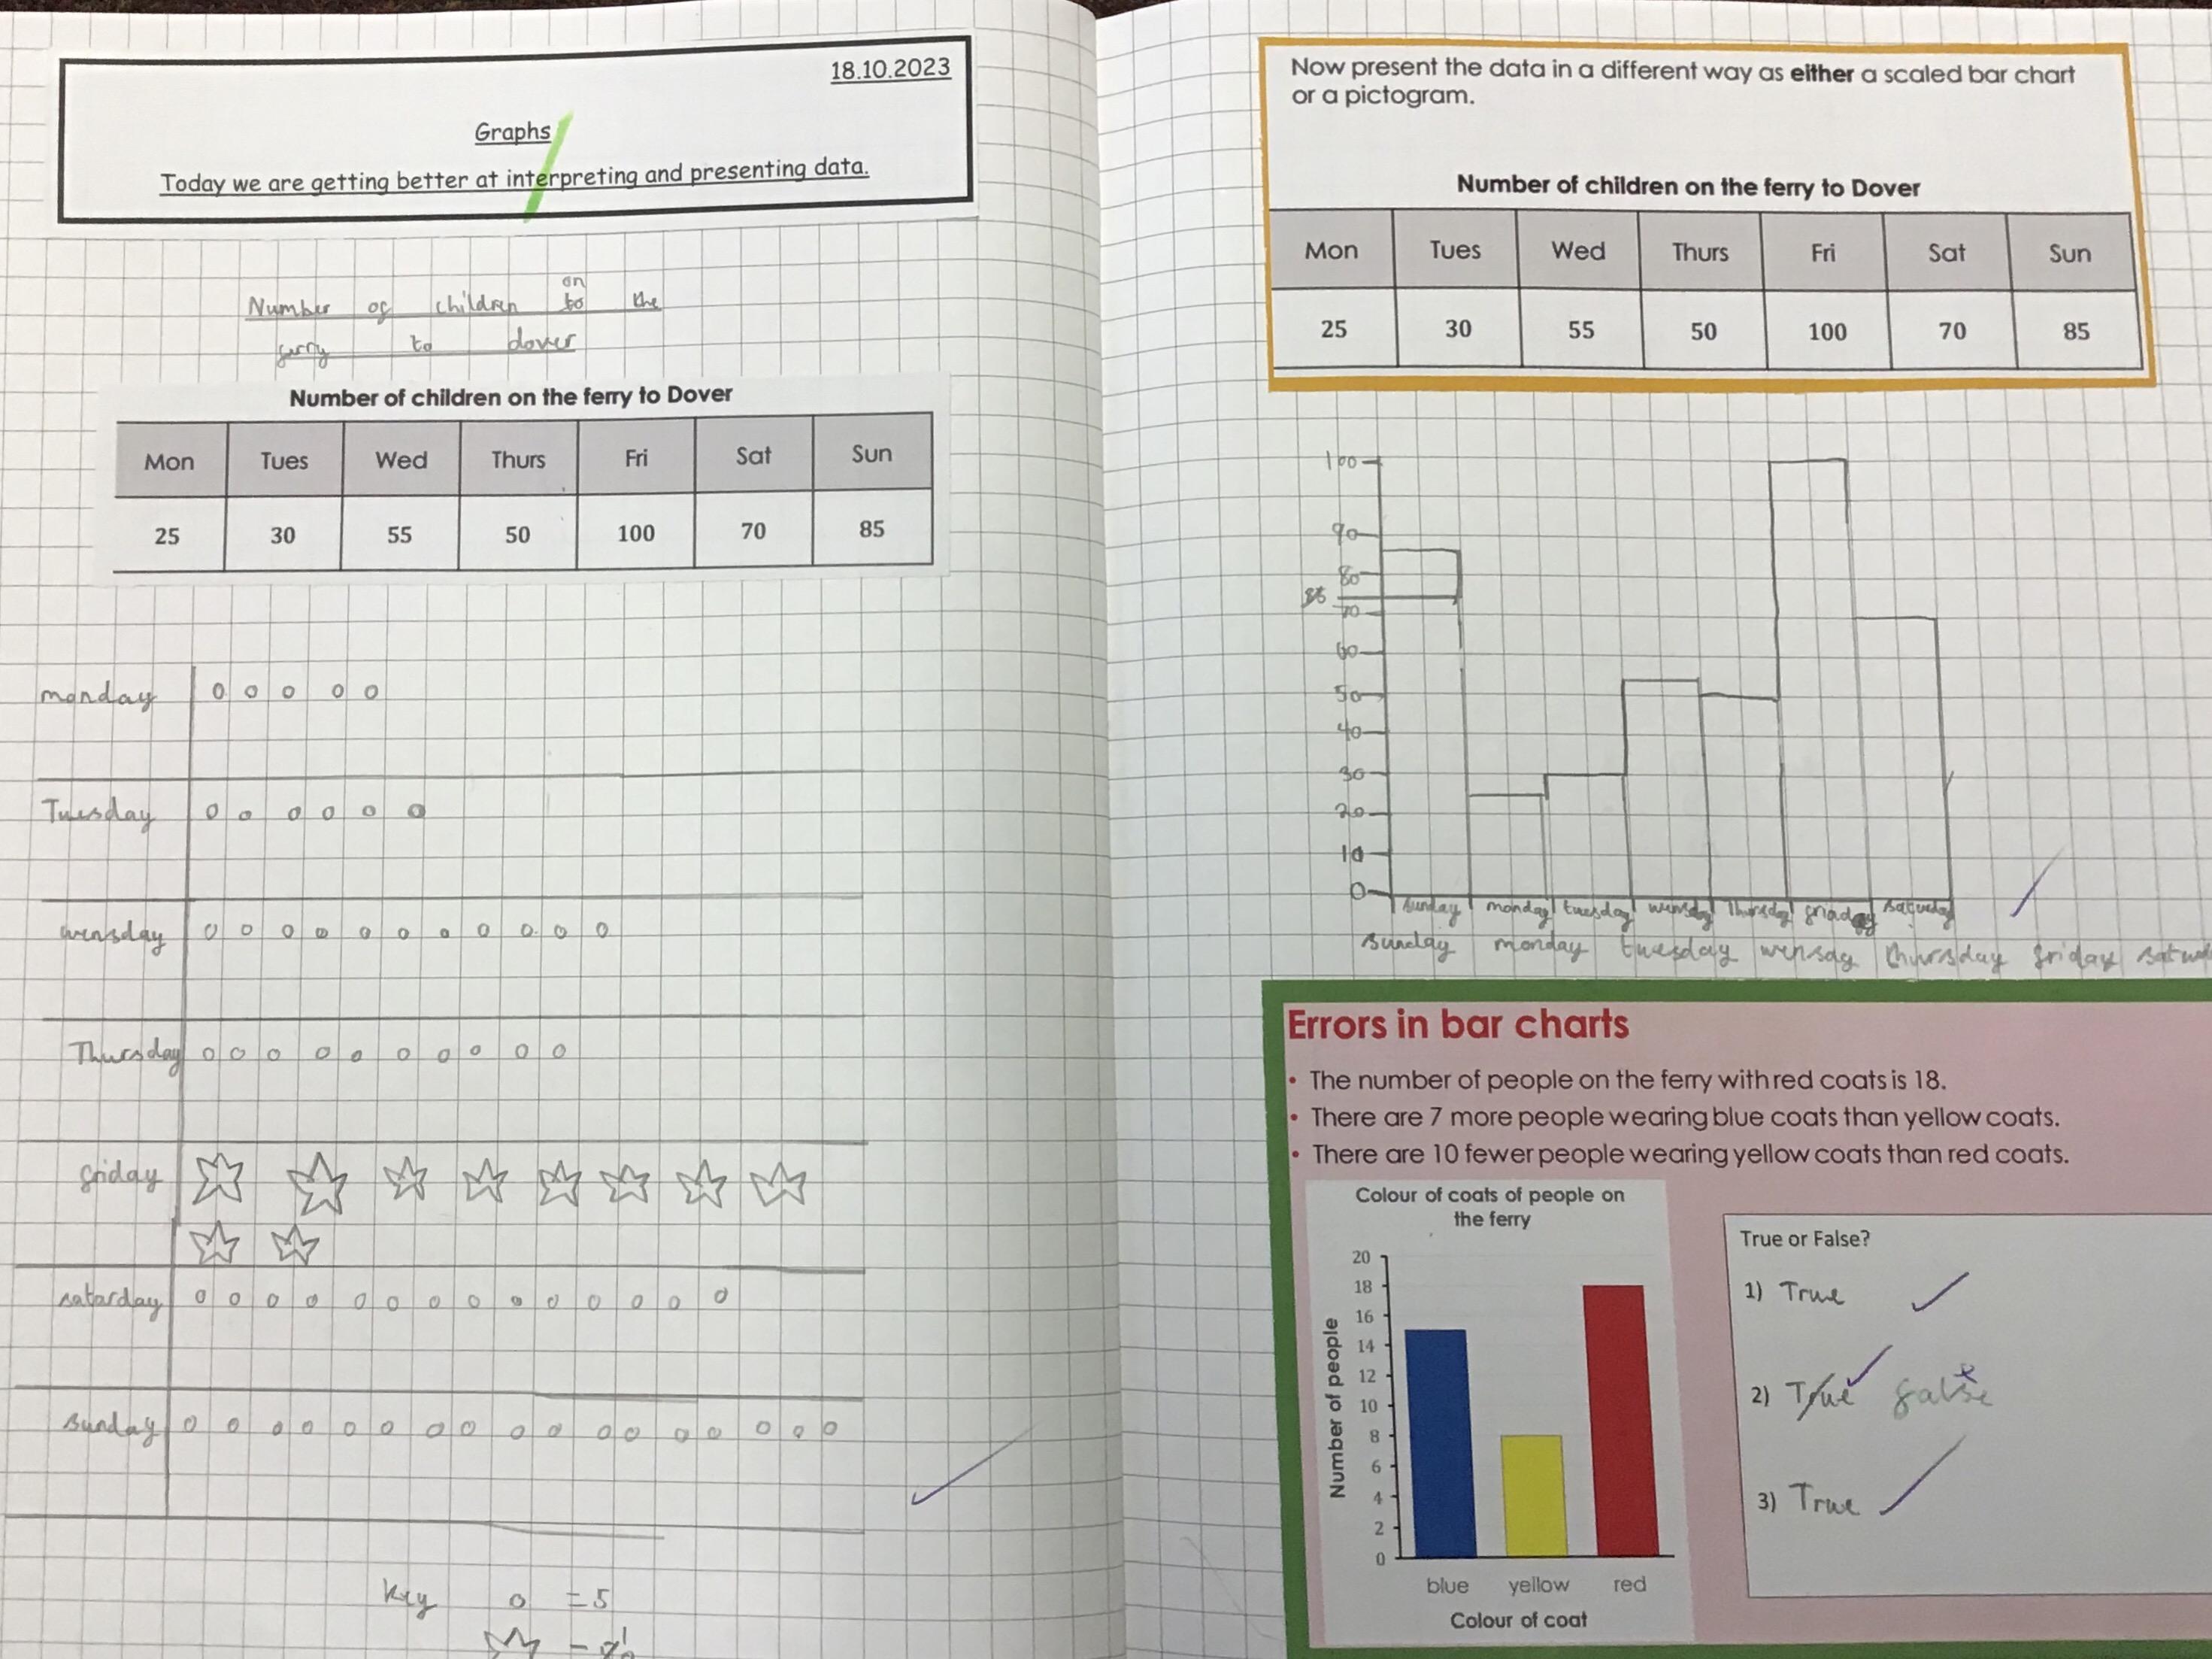 18.10.2023
Graphs
Today we are getting better at interpreting and presenting data.
on
Number of children to the
ferry to dover
Number of children on the ferry to Dover
Mon Tues Wed Thurs Fri Sat Sun
25 30 55 50 100 70 85
monday
Tuesday
wensday
Thursday
friday
satarday
sunday
key o = 5
Now present the data in a different way as either a scaled bar chart
or a pictogram.
Number of children on the ferry to Dover
Mon Tues Wed Thurs Fri Sat Sun
25 30 55 50 100 70 85
100
90
80
85
70
60
50
40
30
20
10
0
sunday monday tuesday thursday
sunday monday tuesday wensday thursday friday
Errors in bar charts
• The number of people on the ferry with red coats is 18.
• There are 7 more people wearing blue coats than yellow coats.
• There are 10 fewer people wearing yellow coats than red coats.
Colour of coats of people on
the ferry
Number of people
20
18
16
14
12
10
8
6
4
2
0
blue yellow red
Colour of coat
True or False?
1) True
2) True false
3) True